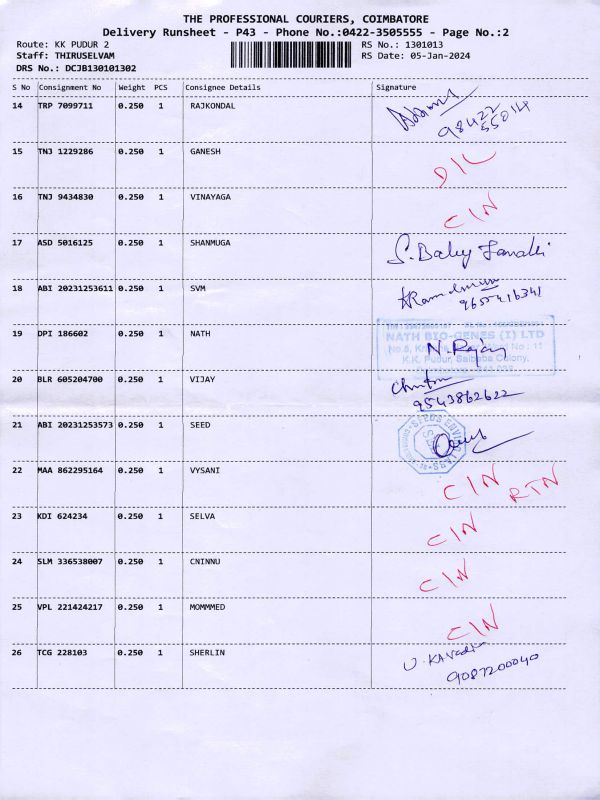 THE PROFESSIONAL COURIERS, COIMBATORE
Delivery Runsheet - P43 - Phone No.:0422-3505555 - Page No.:2
Route: KK PUDUR 2 RS No.: 1301013
Staff: THIRUSELVAM RS Date: 05-Jan-2024
DRS No.: DCJB130101302
S No Consignment No Weight PCS Consignee Details Signature
14 TRP 7099711 0.250 1 RAJKONDAL
98422
55014
15 TNJ 1229286 0.250 1 GANESH D/L
16 TNJ 9434830 0.250 1 VINAYAGA C/N
17 ASD 5016125 0.250 1 SHANMUGA S. Baby Janaki
18 ABI 20231253611 0.250 1 SVM
9655416341
19 DPI 186602 0.250 1 NATH
NATH BIO-GENES (I) LTD
N. Rajan
K.K. Pudur, Saibaba Colony.
20 BLR 605204700 0.250 1 VIJAY
9543862622
21 ABI 20231253573 0.250 1 SEED
SEEDS
22 MAA 862295164 0.250 1 VYSANI C/N RTN
23 KDI 624234 0.250 1 SELVA C/N
24 SLM 336538007 0.250 1 CNINNU C/N
25 VPL 221424217 0.250 1 MOMMMED C/N
26 TCG 228103 0.250 1 SHERLIN U. Kavadi
9087200040